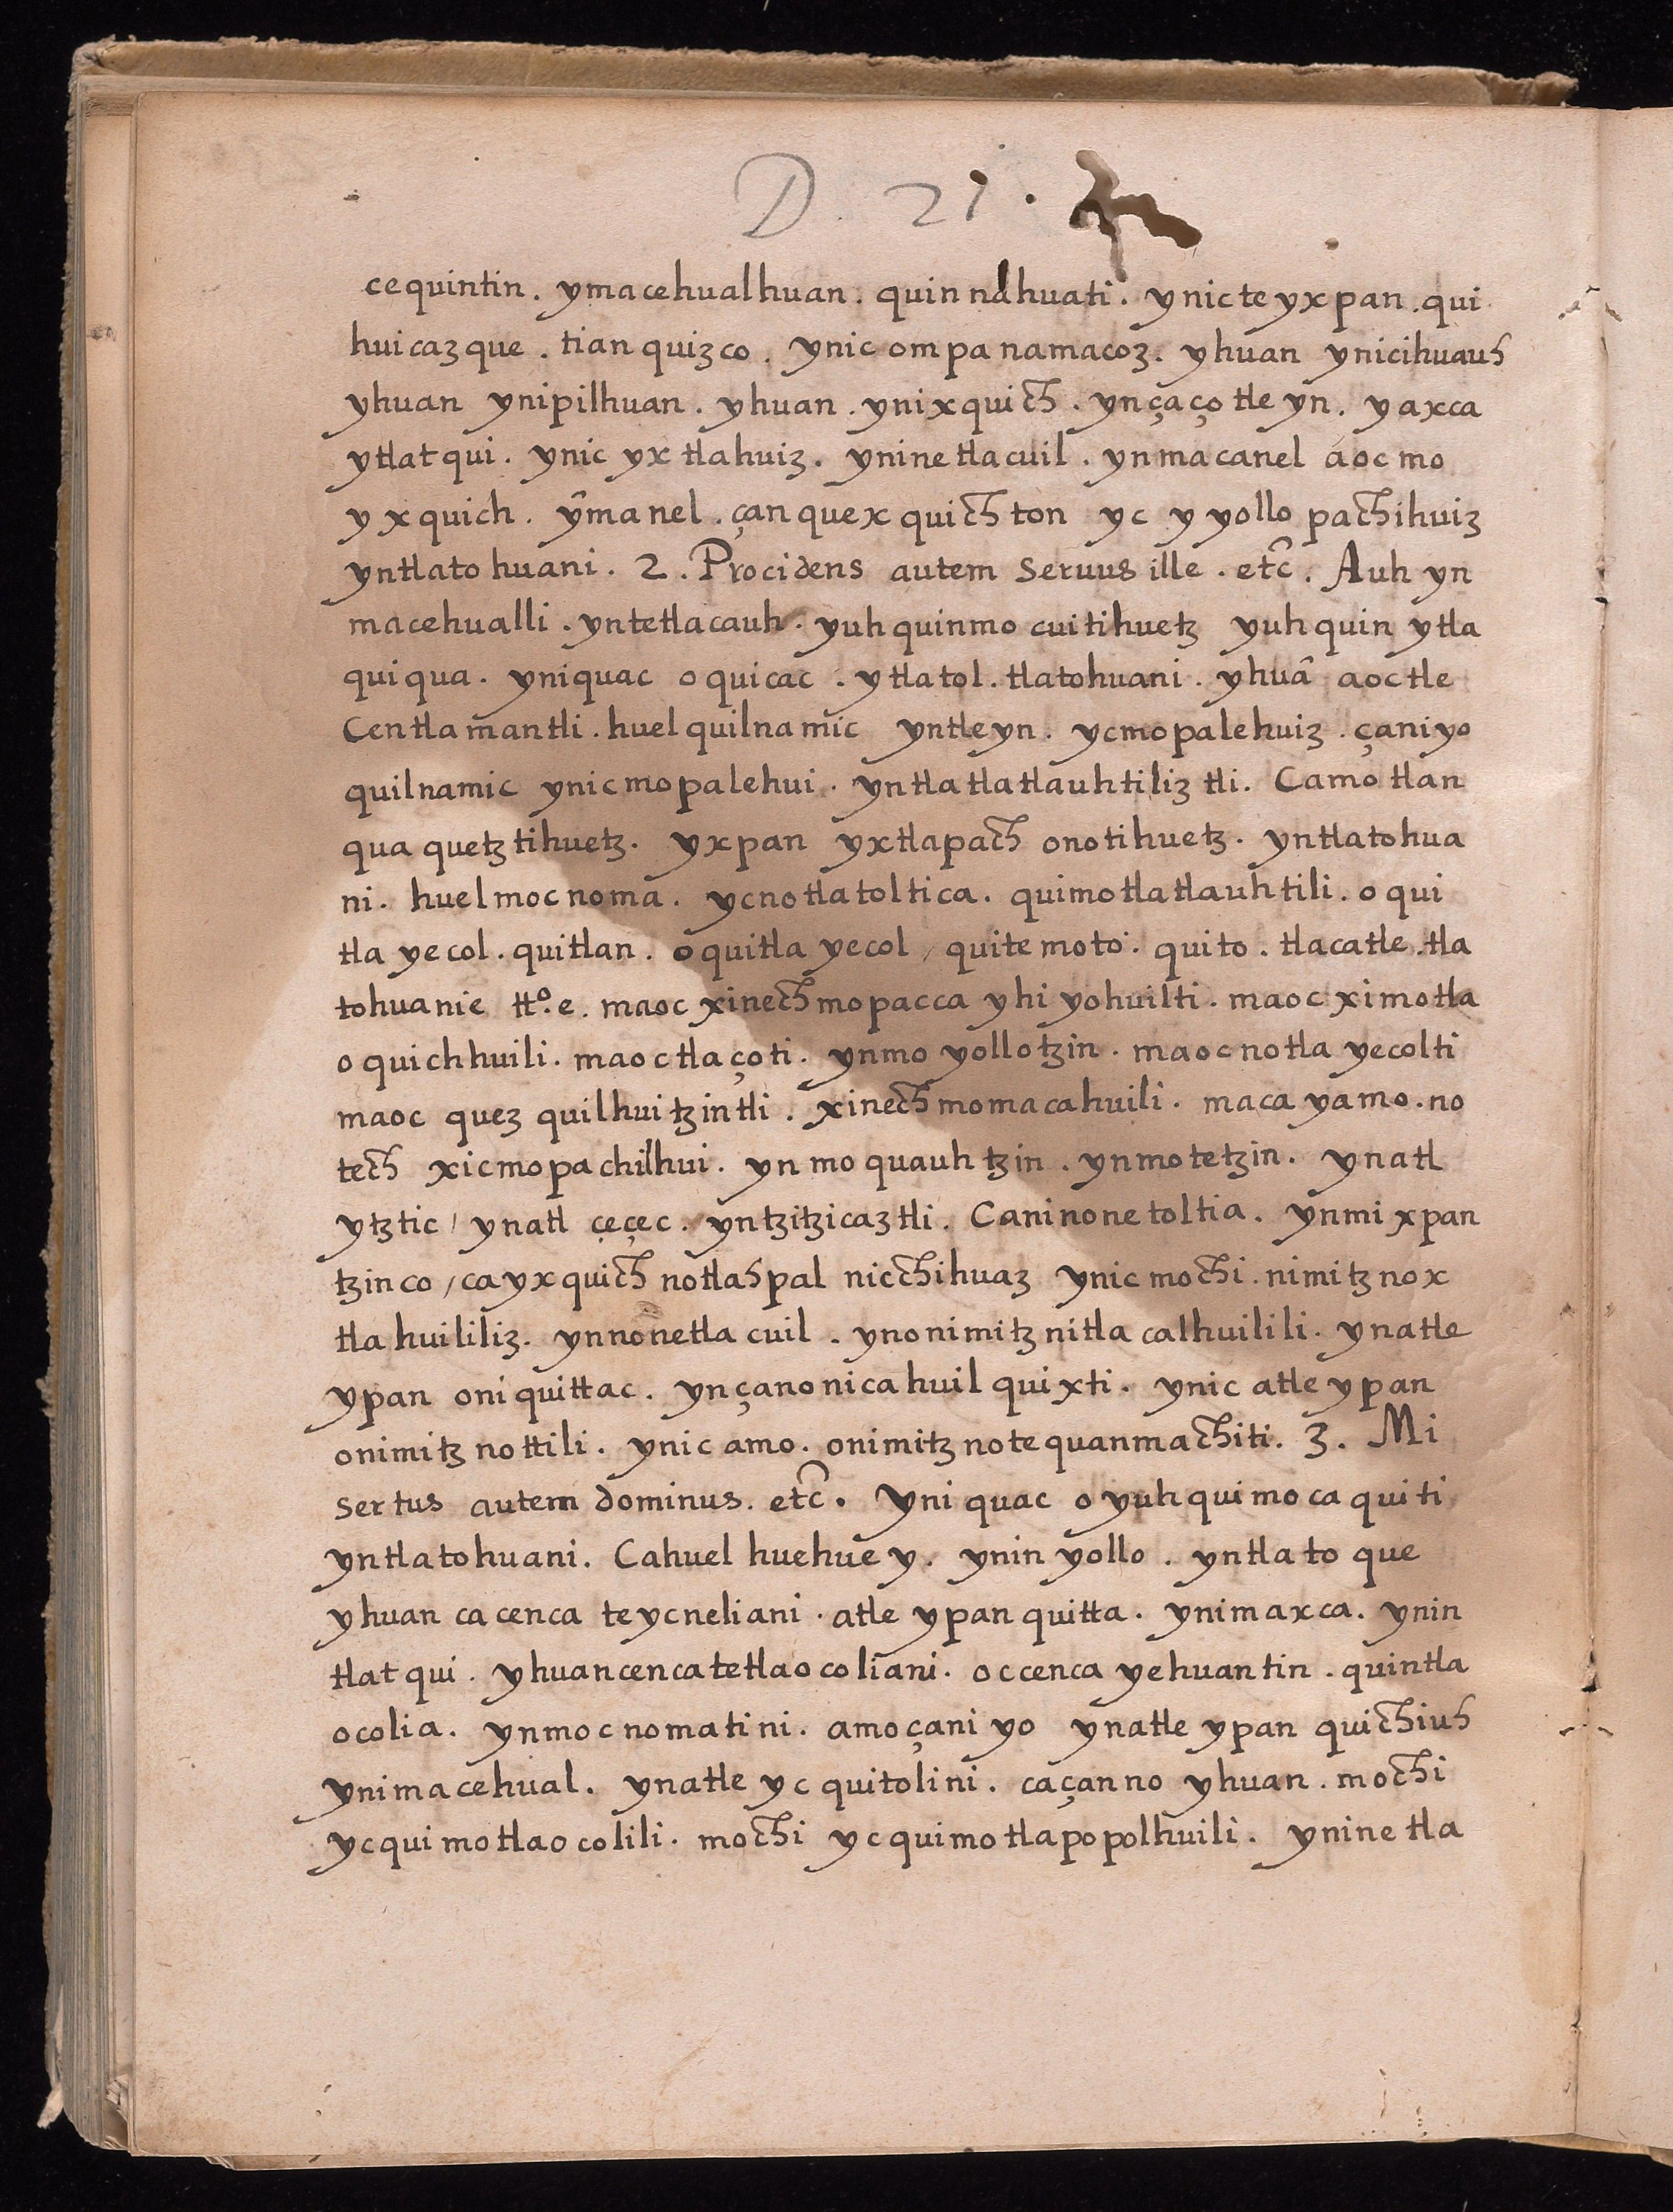 D. 21.
cequintin. ymacehualhuan. quinnahuati. ynicteyxpan. qui
huicazque. tianquizco. ynic ompa namacoz. yhuan ynicihuauh
yhuan ynipilhuan. yhuan. ynixquich. ynçaço tle yn. yaxca
ytlatqui. ynic yxtlahuiz. yninetlacuil. ynmacanel aocmo
yxquich. ŷmanel. çanquexquichton yc yyollo pachihuiz
yntlatohuani. 2. Procidens autem seruus ille. etc̃. Auh yn
macehualli. yntetlacauh. yuhquinmo cuitihuetz yuhquin ytla
quiqua. yniquac oquicac. ytlatol. tlatohuani. yhuâ aoctle
Centlamantli. huel quilnamic yntleyn. ycmopalehuiz. çaniyo
quilnamic ynicmopalehui. yntlatlatlauhtiliztli. Camo tlan
qua quetztihuetz. yxpan yxtlapach onotihuetz. yntlatohua
ni. huelmocnoma. ycnotlatoltica. quimotlatlauhtili. oqui
tla yecol. quitlan. oquitla yecol, quitemoto. quito. tlacatle. tla
tohuanie ttº.e. maoc xinechmopacca yhiyohuilti. maoc ximotla
oquichhuili. maoctlaçoti. ynmo yollotzin. maocnotla yecolti
maoc quez quilhuitzintli. xinechmomacahuili. maca yamo. no
tech xicmopachilhui. yn mo quauhtzin. ynmotetzin. ynatl
ytztic, ynatl çeçec. yntzitzicaztli. Caninonetoltia. ynmixpan
tzinco, cayxquich notlahpal nicchihuaz ynic mochi. nimitznox
tlahuililiz. ynnonetlacuil. ynonimitznitlacalhuilili. ynatle
ypan oniquittac. ynçanonicahuilquixti. ynic atle ypan
onimitznottili. ynic amo. onimitznotequanmachiti. 3. Mi
sertus autem dominus. etc̃. Yniquac oyuhquimocaquiti
yntlatohuani. Cahuel huehuey. ynin yollo. yntlatoque
yhuan ca cenca teycneliani. atle ypan quitta. ynimaxca. ynin
tlatqui. yhuancencatetlaocoliani. occenca yehuantin. quintla
ocolia. ynmocnomatini. amoçaniyo ynatle ypan quichiuh
ynimacehual. ynatle yc quitolini. caçanno yhuan. mochi
ycquimotlaocolili. mochi yc quimotlapopolhuili. yninetla